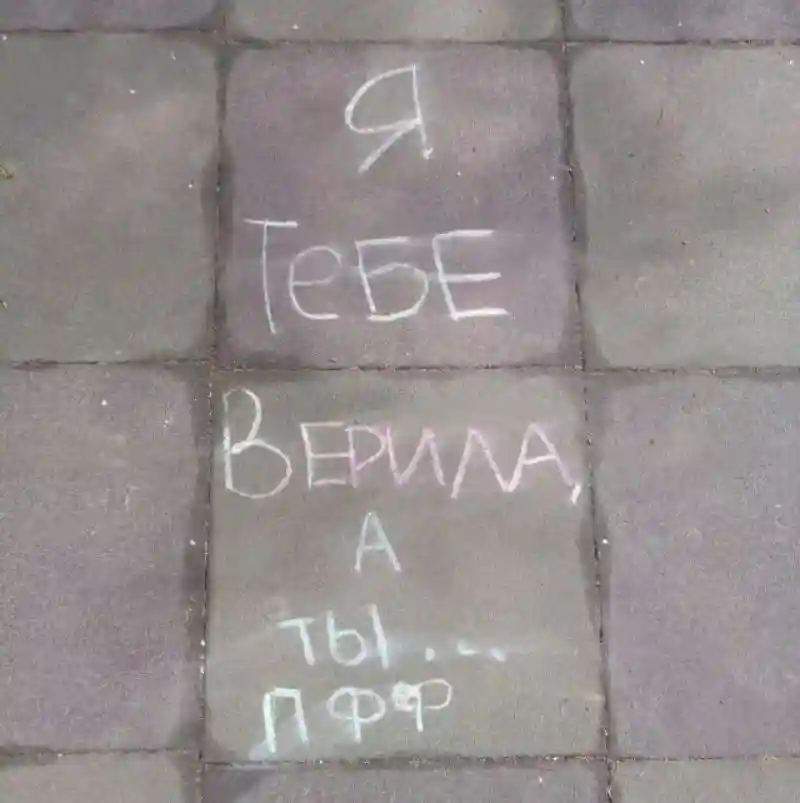 Я
ТеБЕ
ВЕРИЛА,
А
ты...
ПФФ